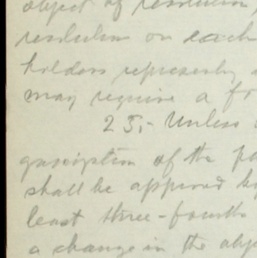 object of resolution,
resolution on each
holders representing
may require a
25.- Unless
of the
shall be approved by
least three-fourths
a change in the